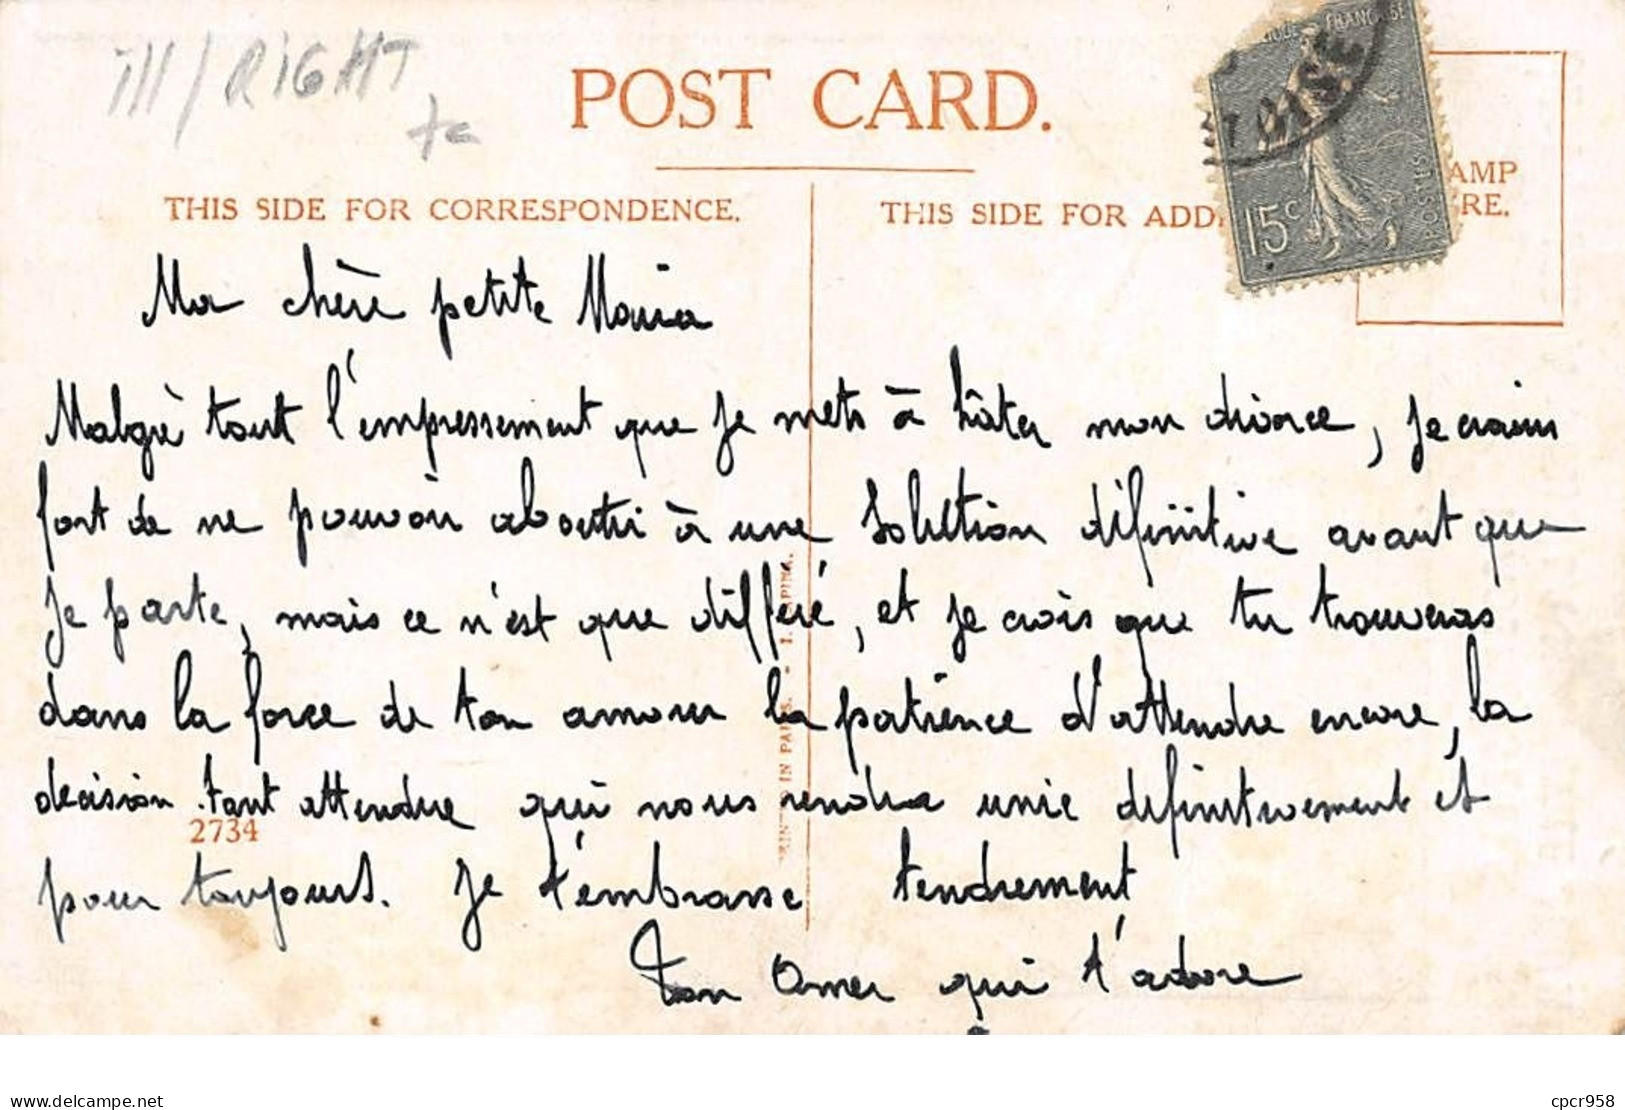 ill / RIGHT
7e
POST CARD.
FRANÇAISE
POSTES
15c
AMP
RE.
THIS SIDE FOR CORRESPONDENCE.
THIS SIDE FOR ADD
Ma chère petite Maria
Malgré tout l'empressement que je mets à hâter mon divorce, je crains
fort de ne pouvoir aboutir à une solution définitive avant que
je parte, mais ce n'est que différé, et je crois que tu trouveras
dans la force de ton amour la patience d'attendre encore, la
décision tant attendue qui nous rendra unie définitivement et
pour toujours. Je t'embrasse tendrement
Ton Omer qui t'adore
2734
cpcr958
delcampe.net